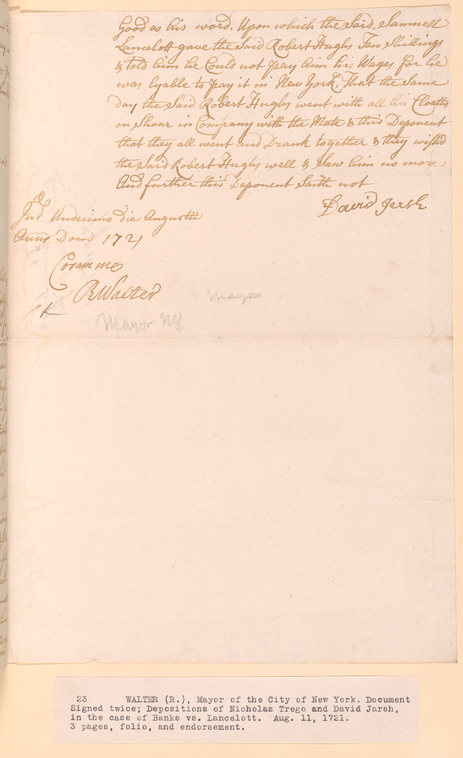 Good as his word. Upon which the Said Samuell
Lancelott gave the Said Robert Hughs Ten Shillings
& told him he Could not pay him his Wages for he
was lyable to pay it in New York. That the Same
day the Said Robert Hughs went with all his Cloaths
on Shoar in Company with the Mate & this Deponent
that they all went and Drank together & they wished
the Said Robert Hughs well & Saw him no more
And further this Deponent Saith not
David Jersh
Jur. Undecimo die Augusti
Anno Dom 1721
Coram me
R Walter
Mayor
Mayor NY.
23 WALTER (R.), Mayor of the City of New York. Document
Signed twice; Depositions of Nicholas Trego and David Jarsh,
in the case of Banks vs. Lancelott. Aug. 11, 1721.
3 pages, folio, and endorsement.